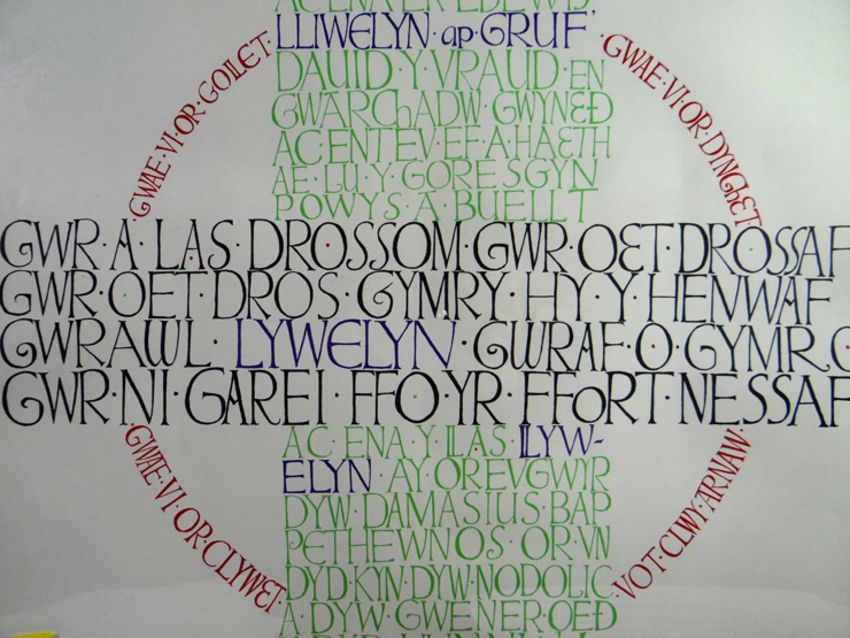 AC ENA ER EDEWIS
LLIWELYN · ap · GRUF'
DAUID · Y · VRAUD · EN
GWARCHADW · GWYNEĐ
AC ENTEV · EF · A · HAETH
AE · LU · Y · GORESGYN
POWYS · A · BUELLT
GWAE · VI · OR · GOLLET ·
GWAE · VI · OR · DYNGHET
GWR · A · LAS · DROSSOM · GWR · OET · DROSSAF
GWR · OET · DROS · GYMRY · HY · Y · HENWAF
GWRAWL · LYWELYN · GWRAF · O · GYMRO
GWR · NI · GAREI · FFO · YR · FFORT · NESSAF
AC · ENA · Y · LLAS · LLYW-
ELYN · AY · OREVGWYR
DYW · DAMASIUS · BAP
PETHEWNOS · OR · VN
DYD · KYN · DYW · NODOLIC ·
A · DYW · GWENER · OEĐ
GWAE · VI · OR · CLYWET ·
VOT · CLWY · ARNAW ·